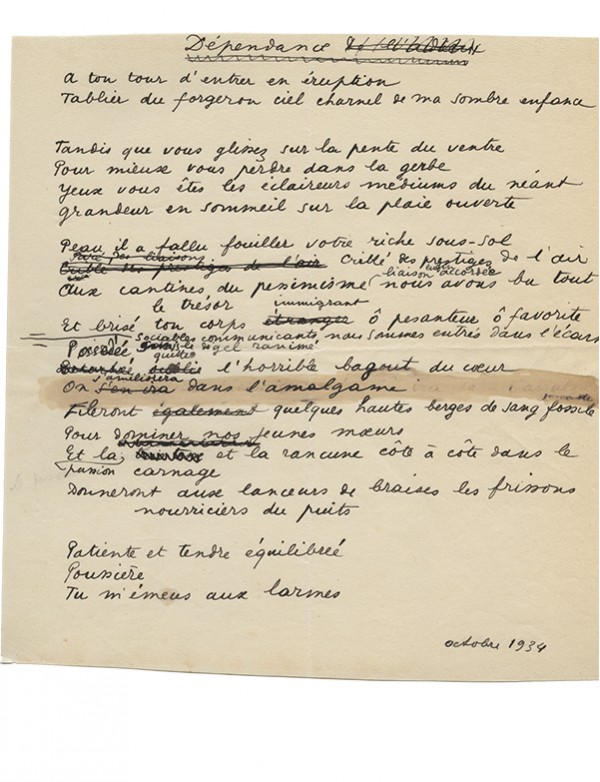 Dépendance
A ton tour d'entrer en éruption
Tablier du forgeron ciel charnel de ma sombre enfance
Tandis que vous glissez sur la pente du ventre
Pour mieux vous perdre dans la gerbe
Yeux vous êtes les éclaireurs médiums du néant
Grandeur en sommeil sur la plaie ouverte
Peau il a fallu fouiller votre riche sous-sol
Paré des liaisons
Criblé des prestiges de l'air Criblé des prestiges de l'air
liaison accordée
Aux cantines du pessimisme nous avons bu tout
le trésor immigrant
Et brisé ton corps étranger ô pesanteur ô favorite
sociables communicants nous sommes entrés dans l'écar
Possédé gel ranimé
quittes
l'horrible bagout du cœur
s'amiliosera
On s'en ira dans l'amalgame
Fileront également quelques hautes berges de sang fossile
Pour dominer nos jeunes mœurs
Et la et la rancune côte à côte dans le
passion carnage
Donneront aux lanceurs de braises les frissons
nourriciers du puits
Patiente et tendre équilibrée
Poussière
Tu m'émeus aux larmes
octobre 1934